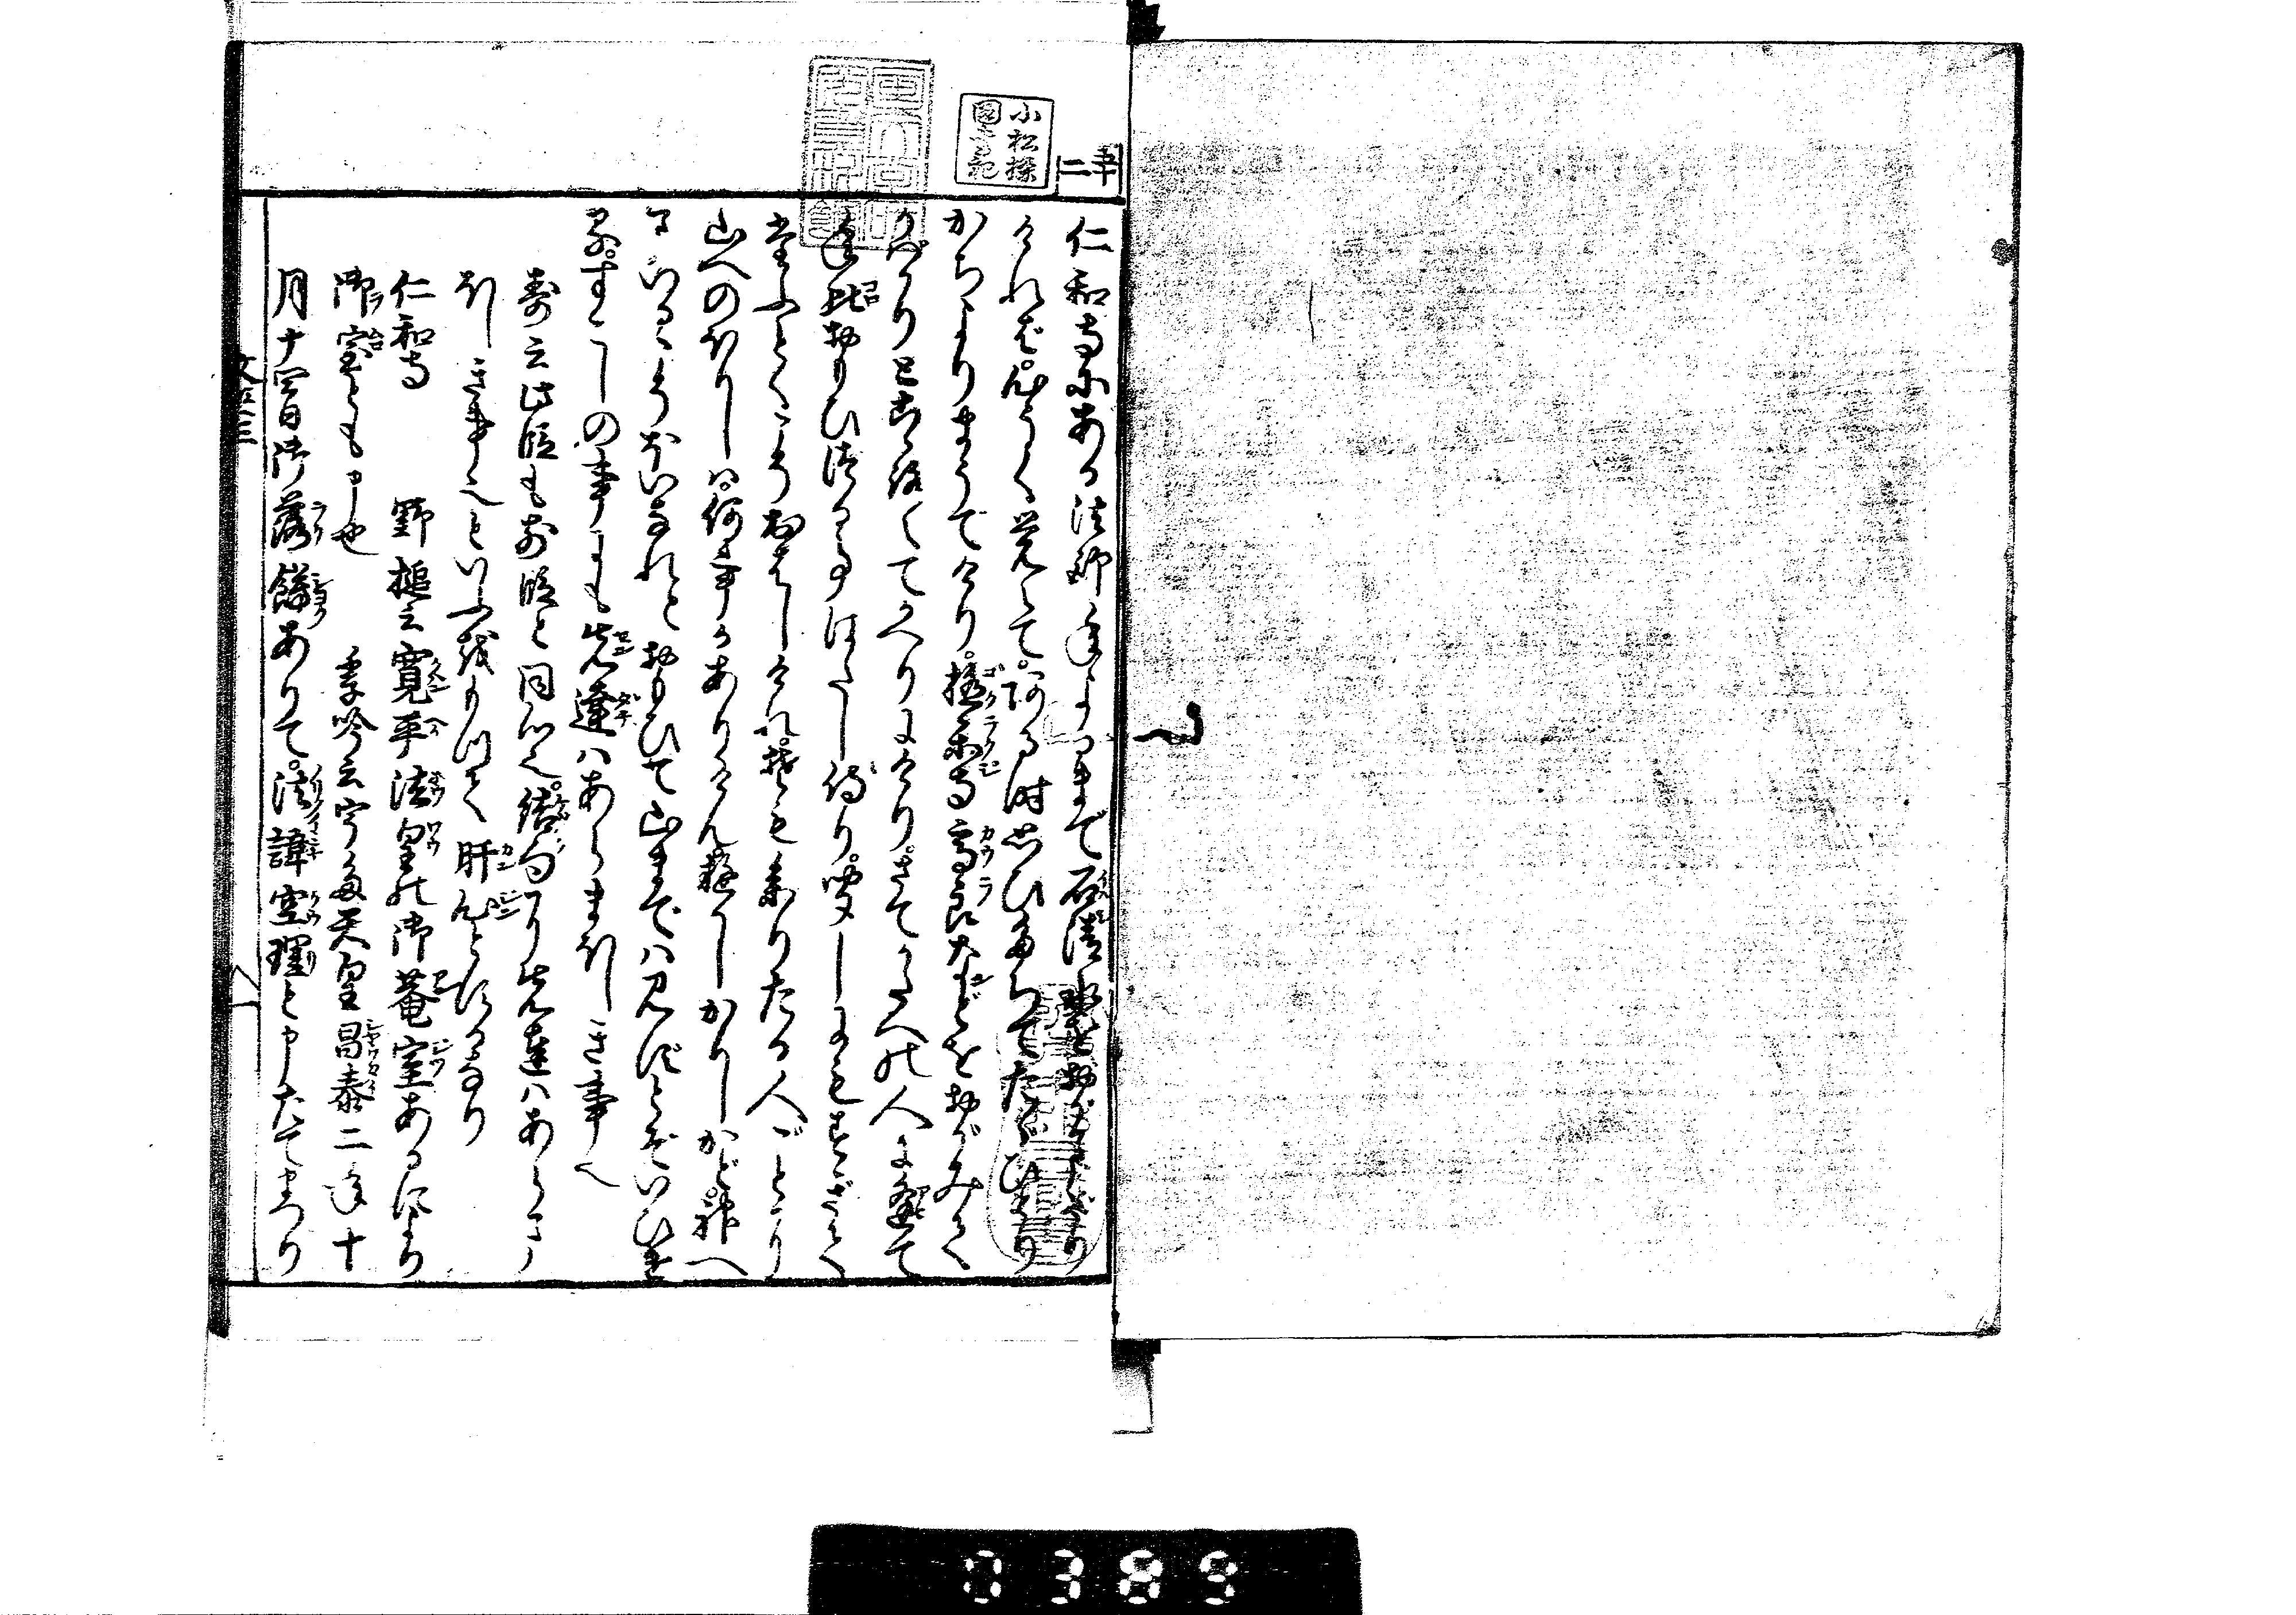 五十二
小松操
圖書記
仁和寺にある法師年よるまで石清水をおがまざり
ければ。心うく覚えて。ある時思ひたちてたゞひとり
かちよりまうでけり。極楽寺高良などををがみてか
ばかりと心得てかへりにけり。さてかたへの人に逢て
年比おもひつる事はたし侍り。聞しにもすぎて
たふとくこそおはしけれ。そも参りたる人ごとに
山へのぼりしは。何事かありけん。ゆかしかりしかど。神へ
まいるこそほいなれとおもひて山までは見ずとぞいひ
ける。すこしの事にも先達はあらまほしき事也
寿云此段も前段と同心也。結句に先達はあらま
ほしき事也といふ
仁和寺 野槌云寛平法皇の御菴室あるにより
御室とも申也 季吟云宇多天皇昌泰二年十
月十四日御落餝ありて。法諱空理と申たてまつり
文段三
0389